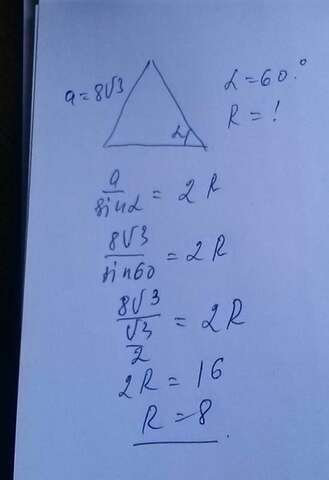 a = 8√3
α
α = 60.°
R = !
a/sinα = 2R
8√3/sin60 = 2R
8√3/(√3/2) = 2R
2R = 16
R = 8